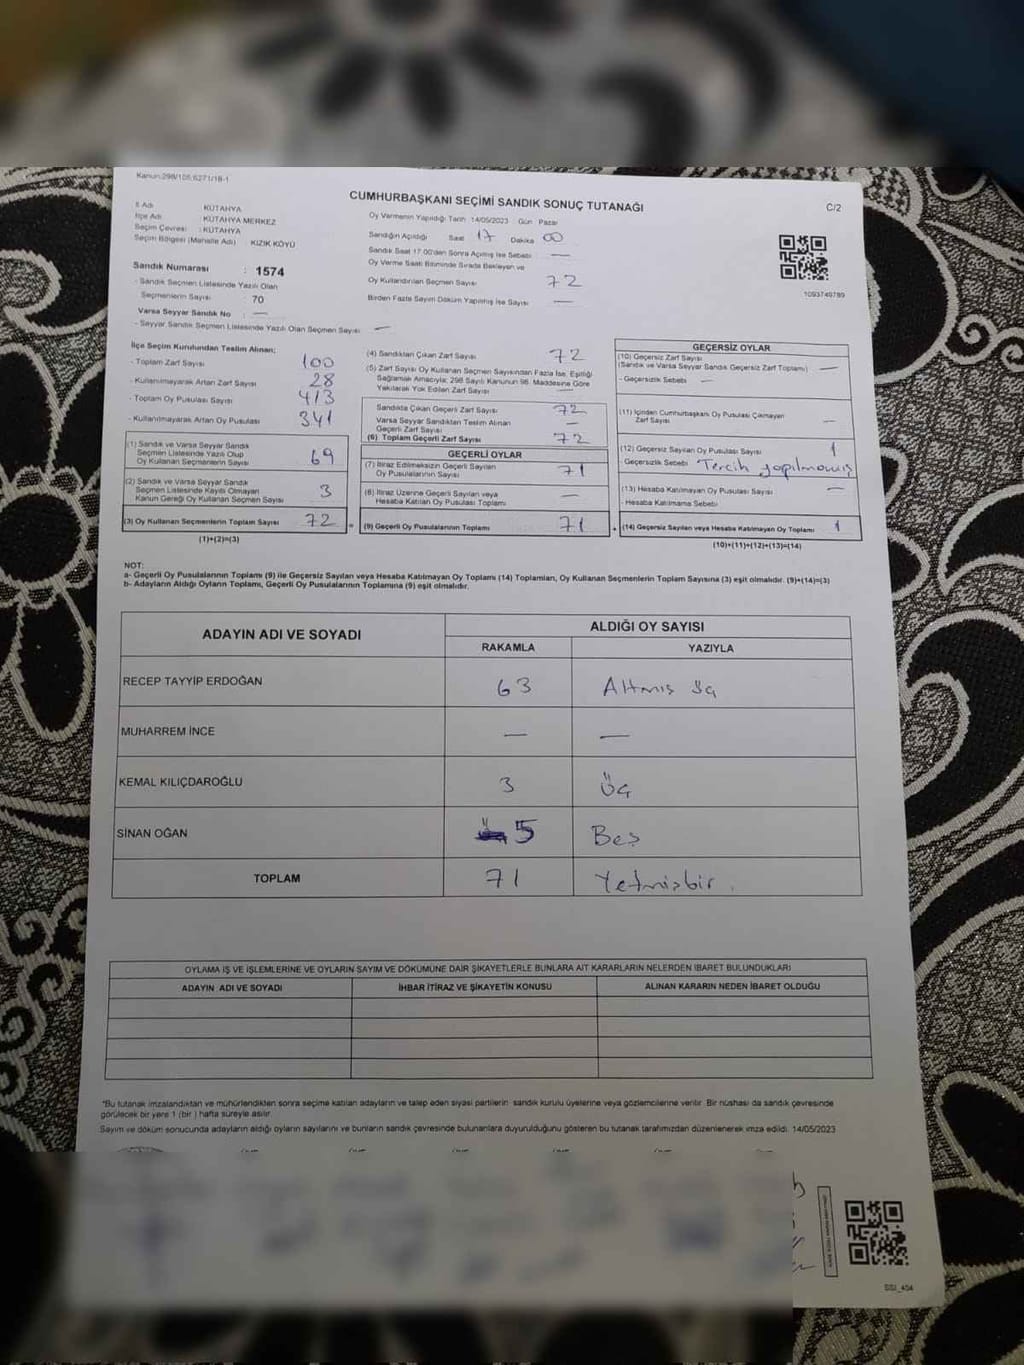 Kanun:298/105,6271/18-1
CUMHURBAŞKANI SEÇİMİ SANDIK SONUÇ TUTANAĞI
C/2
İl Adı : KÜTAHYA
İlçe Adı : KÜTAHYA MERKEZ
Seçim Çevresi : KÜTAHYA
Seçim Bölgesi (Mahalle Adı) : KIZIK KÖYÜ
Sandık Numarası : 1574
- Sandık Seçmen Listesinde Yazılı Olan
Seçmenlerin Sayısı : 70
Varsa Seyyar Sandık No : —
- Seyyar Sandık Seçmen Listesinde Yazılı Olan Seçmen Sayısı : —
Oy Vermenin Yapıldığı Tarih 14/05/2023 Gün Pazar
Sandığın Açıldığı Saat 17 Dakika 00
Sandık Saat 17.00'den Sonra Açılmış İse Sebebi —
Oy Verme Saati Bitiminde Sırada Bekleyen ve
Oy Kullandırılan Seçmen Sayısı 72
Birden Fazla Sayım Döküm Yapılmış İse Sayısı —
1093749789
İlçe Seçim Kurulundan Teslim Alınan;
- Toplam Zarf Sayısı 100
- Kullanılmayarak Artan Zarf Sayısı 28
- Toplam Oy Pusulası Sayısı 413
- Kullanılmayarak Artan Oy Pusulası 341
(1) Sandık ve Varsa Seyyar Sandık
Seçmen Listesinde Yazılı Olup
Oy Kullanan Seçmenlerin Sayısı 69
(2) Sandık ve Varsa Seyyar Sandık
Seçmen Listesinde Kayıtlı Olmayan
Kanun Gereği Oy Kullanan Seçmen Sayısı 3
(3) Oy Kullanan Seçmenlerin Toplam Sayısı 72
(1)+(2)=(3)
(4) Sandıktan Çıkan Zarf Sayısı 72
(5) Zarf Sayısı Oy Kullanan Seçmen Sayısından Fazla İse, Eşitliği
Sağlamak Amacıyla; 298 Sayılı Kanunun 98. Maddesine Göre
Yakılarak Yok Edilen Zarf Sayısı —
Sandıkta Çıkan Geçerli Zarf Sayısı 72
Varsa Seyyar Sandıktan Teslim Alınan
Geçerli Zarf Sayısı —
(6) Toplam Geçerli Zarf Sayısı 72
GEÇERLİ OYLAR
(7) İtiraz Edilmeksizin Geçerli Sayılan
Oy Pusulalarının Sayısı 71
(8) İtiraz Üzerine Geçerli Sayılan veya
Hesaba Katılan Oy Pusulası Toplamı —
= (9) Geçerli Oy Pusulalarının Toplamı 71
GEÇERSİZ OYLAR
(10) Geçersiz Zarf Sayısı
(Sandık ve Varsa Seyyar Sandık Geçersiz Zarf Toplamı) —
- Geçersizlik Sebebi —
(11) İçinden Cumhurbaşkanı Oy Pusulası Çıkmayan
Zarf Sayısı —
(12) Geçersiz Sayılan Oy Pusulası Sayısı 1
- Geçersizlik Sebebi Tercih yapılmamış
(13) Hesaba Katılmayan Oy Pusulası Sayısı —
- Hesaba Katılmama Sebebi
+ (14) Geçersiz Sayılan veya Hesaba Katılmayan Oy Toplamı 1
(10)+(11)+(12)+(13)=(14)
NOT:
a- Geçerli Oy Pusulalarının Toplamı (9) ile Geçersiz Sayılan veya Hesaba Katılmayan Oy Toplamı (14) Toplamları, Oy Kullanan Seçmenlerin Toplam Sayısına (3) eşit olmalıdır. (9)+(14)=(3)
b- Adayların Aldığı Oyların Toplamı, Geçerli Oy Pusulalarının Toplamına (9) eşit olmalıdır.
ADAYIN ADI VE SOYADI
ALDIĞI OY SAYISI
RAKAMLA YAZIYLA
RECEP TAYYİP ERDOĞAN 63 Altmış üç
MUHARREM İNCE — —
KEMAL KILIÇDAROĞLU 3 Üç
SİNAN OĞAN 5 Beş
TOPLAM 71 Yetmişbir.
OYLAMA İŞ VE İŞLEMLERİNE VE OYLARIN SAYIM VE DÖKÜMÜNE DAİR ŞİKAYETLERLE BUNLARA AİT KARARLARIN NELERDEN İBARET BULUNDUKLARI
ADAYIN ADI VE SOYADI İHBAR İTİRAZ VE ŞİKAYETİN KONUSU ALINAN KARARIN NEDEN İBARET OLDUĞU
"Bu tutanak imzalandıktan ve mühürlendikten sonra seçime katılan adayların ve talep eden siyasi partilerin sandık kurulu üyelerine veya gözlemcilerine verilir. Bir nüshası da sandık çevresinde
görülecek bir yere 1 (bir ) hafta süreyle asılır.
Sayım ve döküm sonucunda adayların aldığı oyların sayılarını ve bunların sandık çevresinde bulunanlara duyurulduğunu gösteren bu tutanak tarafımızdan düzenlenerek imza edildi. 14/05/2023